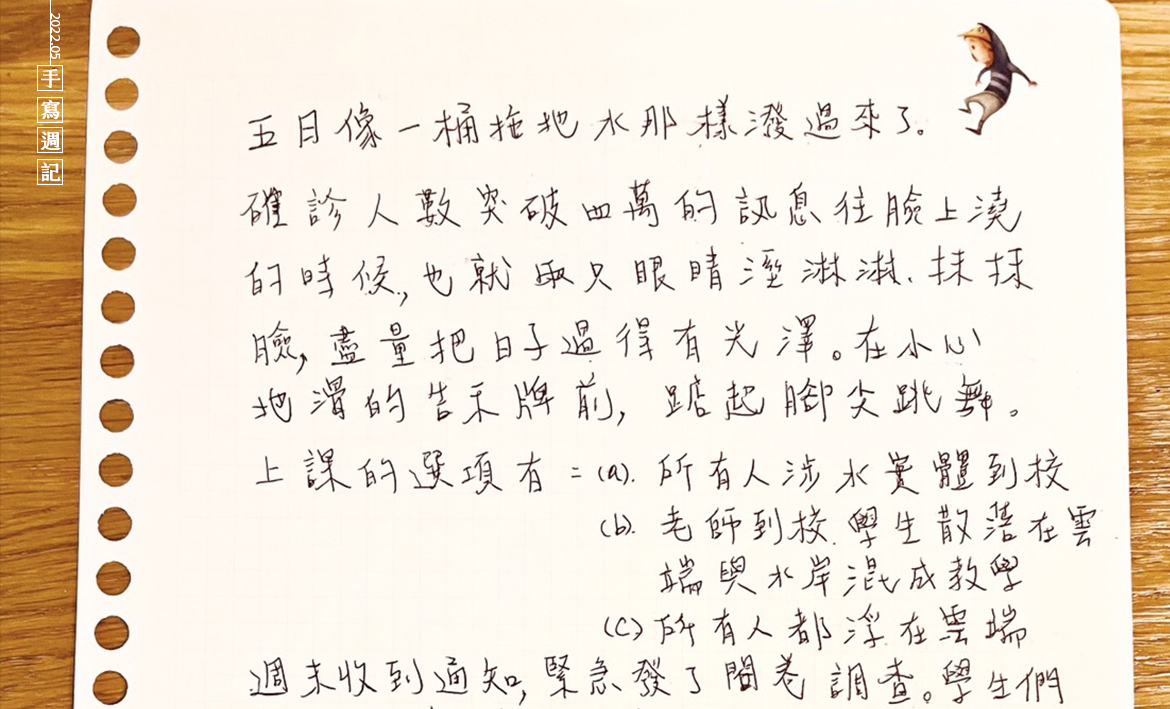 2022.05
手寫週記
五月像一桶拖地水那樣潑過來了。
確診人數突破四萬的訊息往臉上澆
的時候,也就兩只眼睛溼淋淋、抹抹
臉,盡量把日子過得有光澤。在小心
地滑的告示牌前,踮起腳尖跳舞。
上課的選項有=(a). 所有人涉水實體到校
(b). 老師到校.學生散落在雲
端與水岸混成教學
(c) 所有人都浮在雲端
週末收到通知,緊急發了問卷調查。學生們